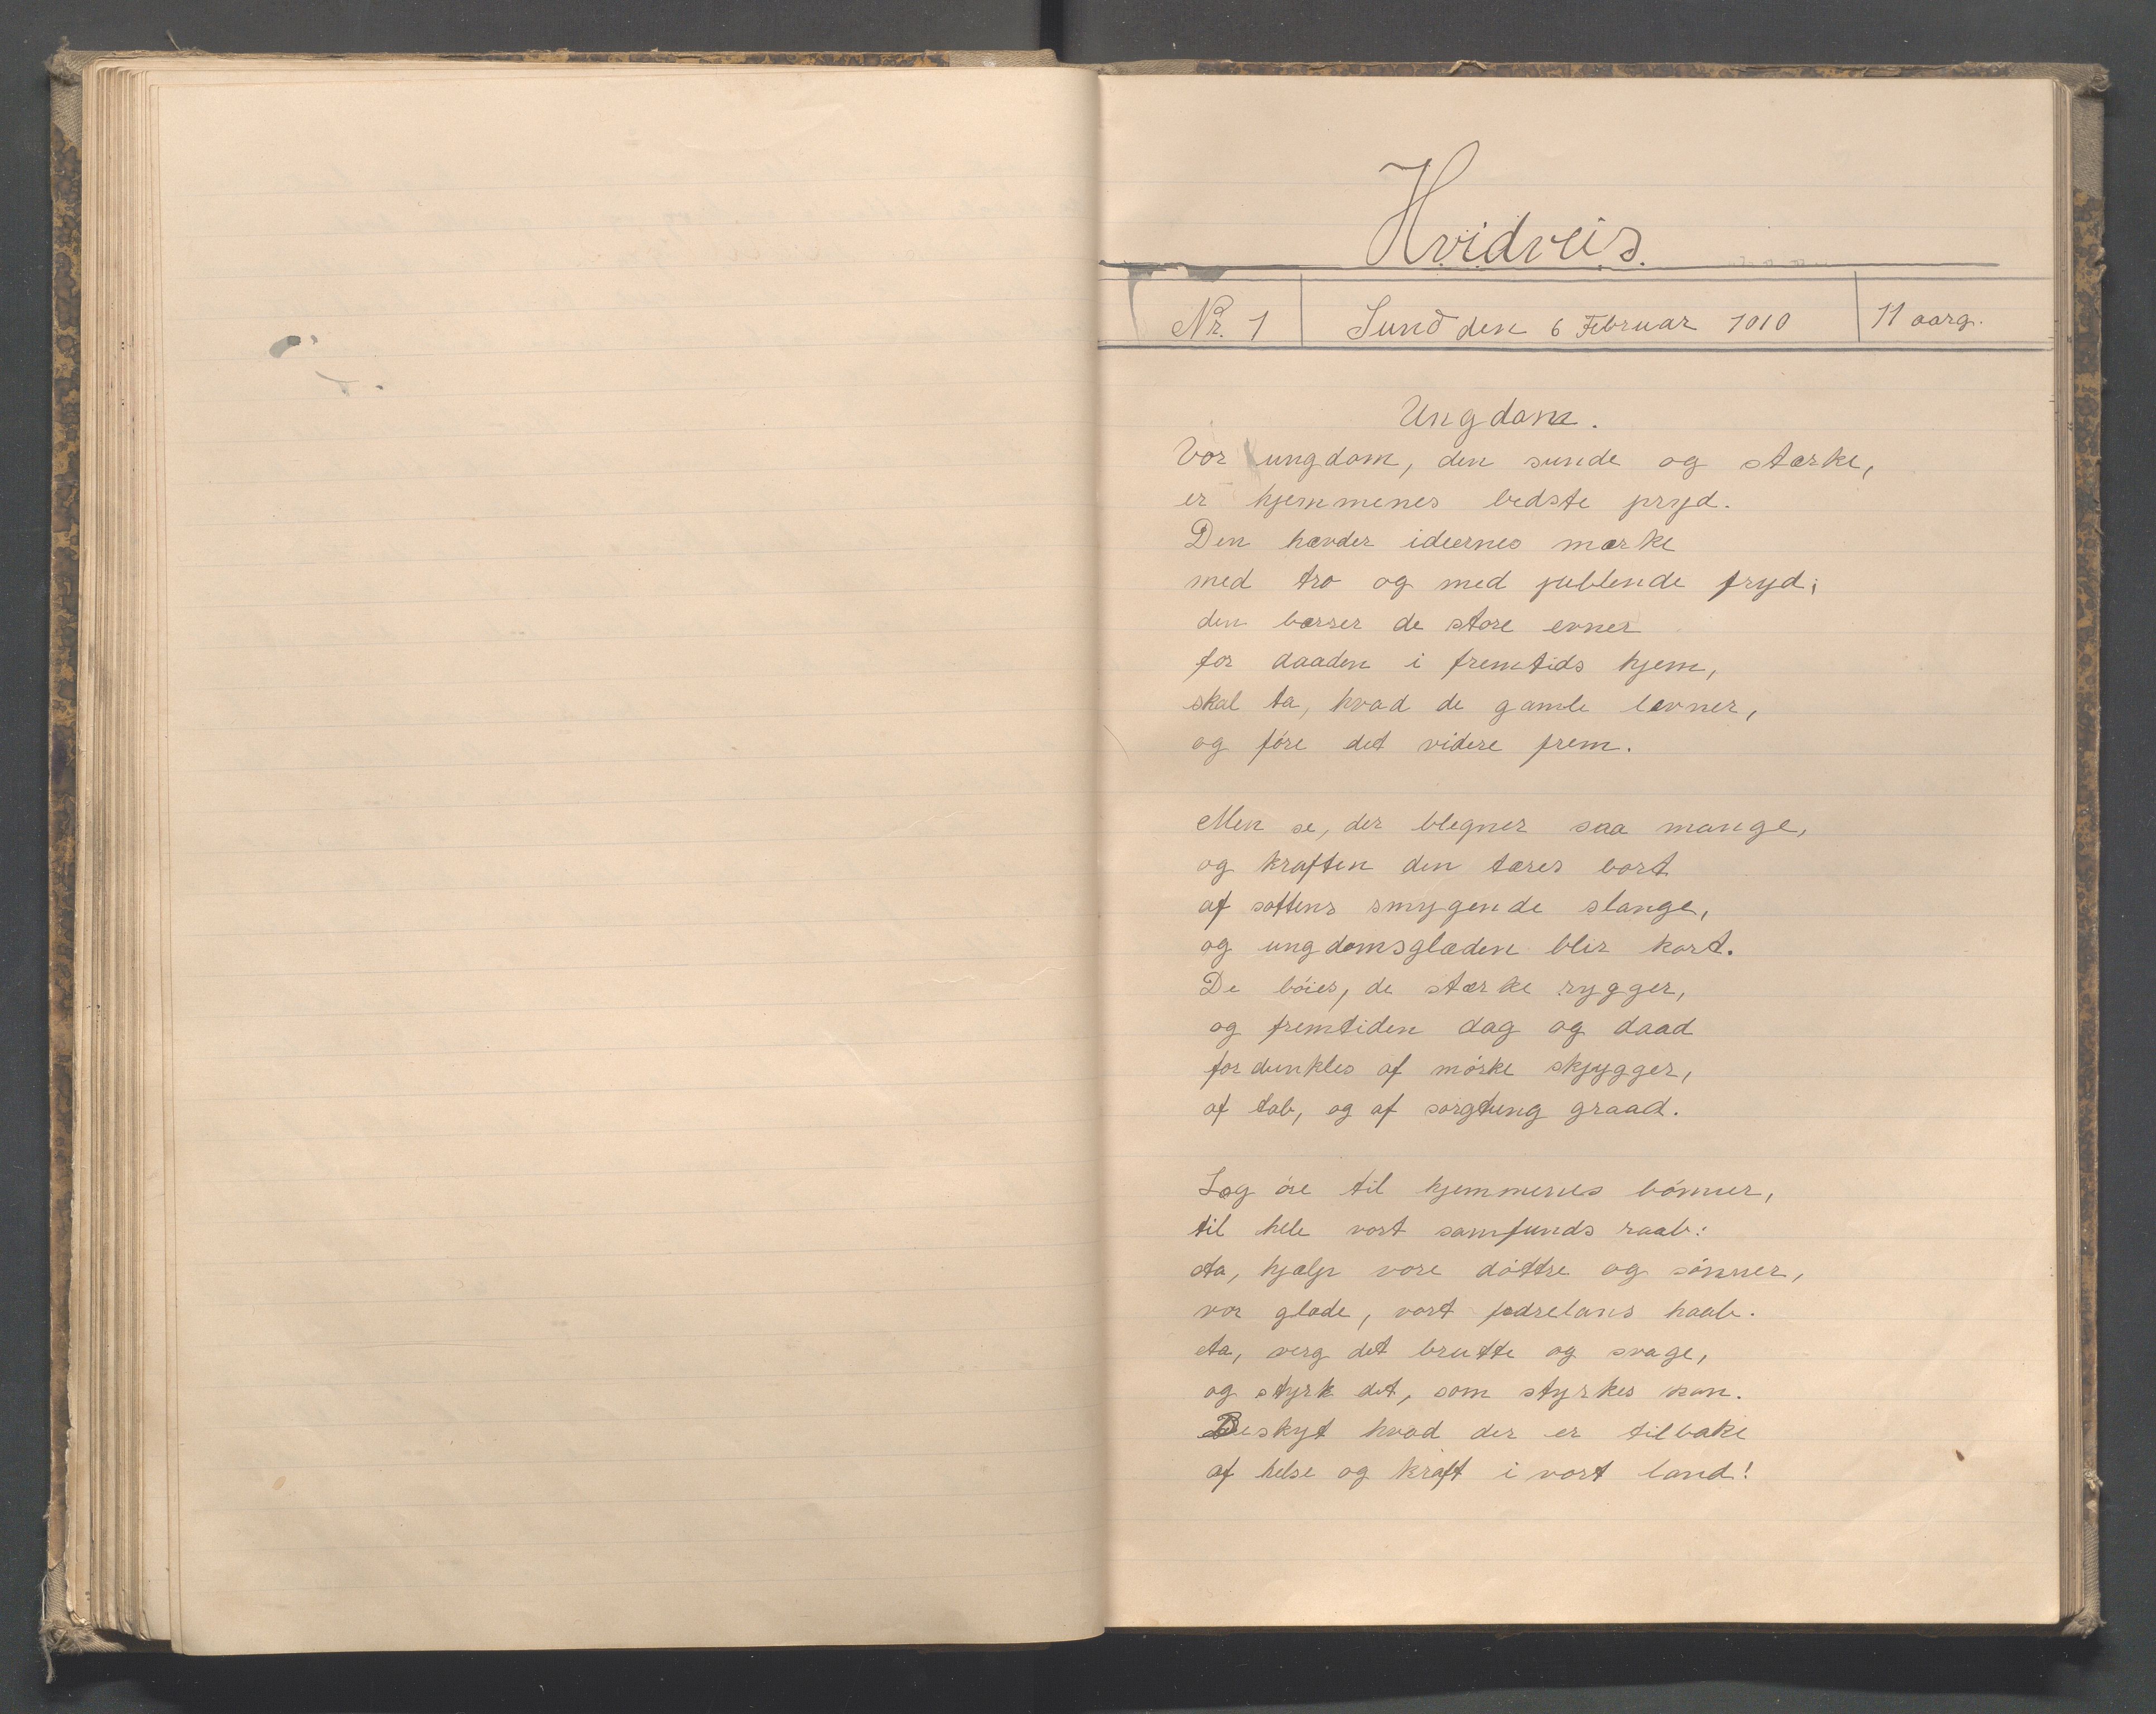 Hvidveis.
Nr. 1 Sund den 6 Februar 1910 11 aarg.
Ungdom.
Vor ungdom, den sunde og stærke,
er hjemmenes bedste pryd.
Den hævder ideernes mærke
med tro og med jublende fryd;
den bærer de store evner
for daaden i fremtids hjem,
skal ta, hvad de gamle levner,
og føre det videre frem.
Men se, der blegner saa mange,
og kraften den tæres bort
af sottens smygende slange,
og ungdomsglæden blir kort.
De bøies, de stærke rygger,
og fremtiden dag og daad
fordunkles af mørke skjygger,
af tab, og af sorgtung graad.
Læg øre til hjemmenes bønner,
til hele vort samfunds raab:
Aa, hjælp vore døttre og sønner,
vor glæde, vort fædrelans haab.
Aa, verg det brutte og svage,
og styrk det, som styrkes kan.
Beskyt hvad der er tilbake
af helse og kraft i vort land!